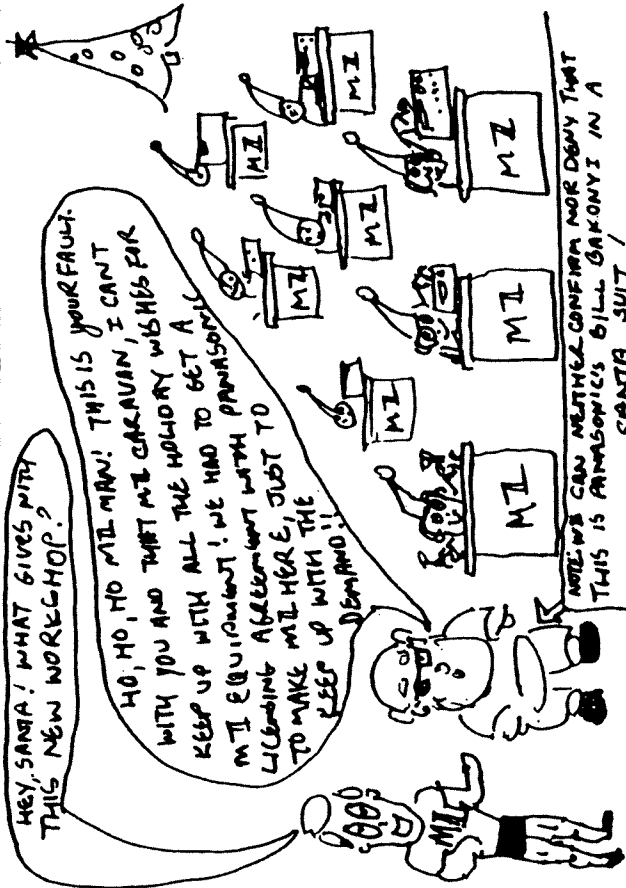 HEY, SANTA! WHAT GIVES WITH
THIS NEW WORKSHOP?
HO, HO, HO MII MAN! THIS IS YOUR FAULT.
WITH YOU AND THAT MII CARAVAN, I CANT
KEEP UP WITH ALL THE HOLIDAY WISHES FOR
MII EQUIPMENT! WE HAD TO GET A
LICENSING AGREEMENT WITH PANASONIC
TO MAKE MII HERE, JUST TO
KEEP UP WITH THE
DEMAND!!
MII
MII
MII
MII
MII
MII
MII
MII
MII
MII
NOTE: WE CAN NEITHER CONFIRM NOR DENY THAT
THIS IS PANASONIC'S BILL BAKONYI IN A
SANTA SUIT!